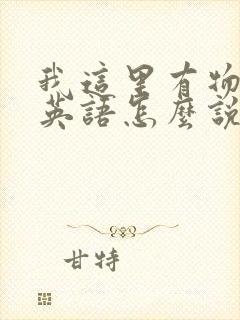 我這里有物
英語怎麼說
甘特